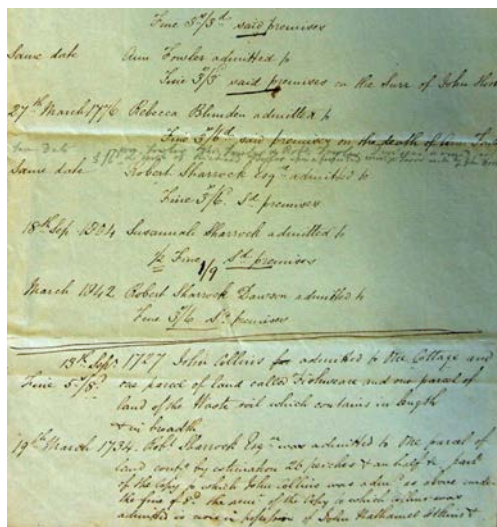 Fine 3s/3d said premises
Same date Ann Fowler admitted to
Fine 3/3 said premises on the Surr. of John
27th March 1776 Rebecca Blunden admitted to
Fine 3/6d said premises on the death of Ann
Same date
Same date Robert Sharrock Esqr admitted to
Fine 3/6. Sd premises
18th Sep 1804 Susannah Sharrock admitted to
½ Fine 1/9 Sd premises
March 1842 Robert Sharrock Dawson admitted to
Fine 3/6 Sd premises
13th Sepr 1727 John Collins admitted to One Cottage and
Fine 5s/8d one parcel of land called and one parcel of
land of the Waste soil which contains in length
& in breadth
19th March 1734. Robt Sharrock Esqr was admitted to One parcel of
land contg by estimation 26 perches & an half & part
of the Copy to which John Collins was admd as above under
the fine of the of the Copy to which Collins was
admitted is now in of John Nathaniel